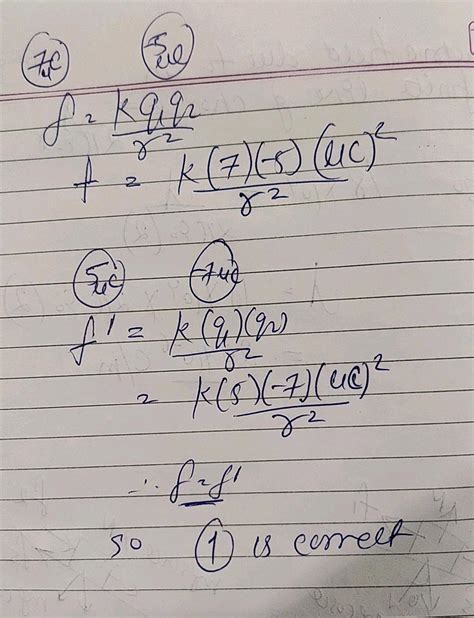 7μC -5μC
f = kq₁q₂/r²
f = k(7)(-5)(μC)²/r²
5μC -7μC
f' = k(q₁)(q₂)/r²
= k(5)(-7)(μC)²/r²
∴ f = f'
so ① is correct